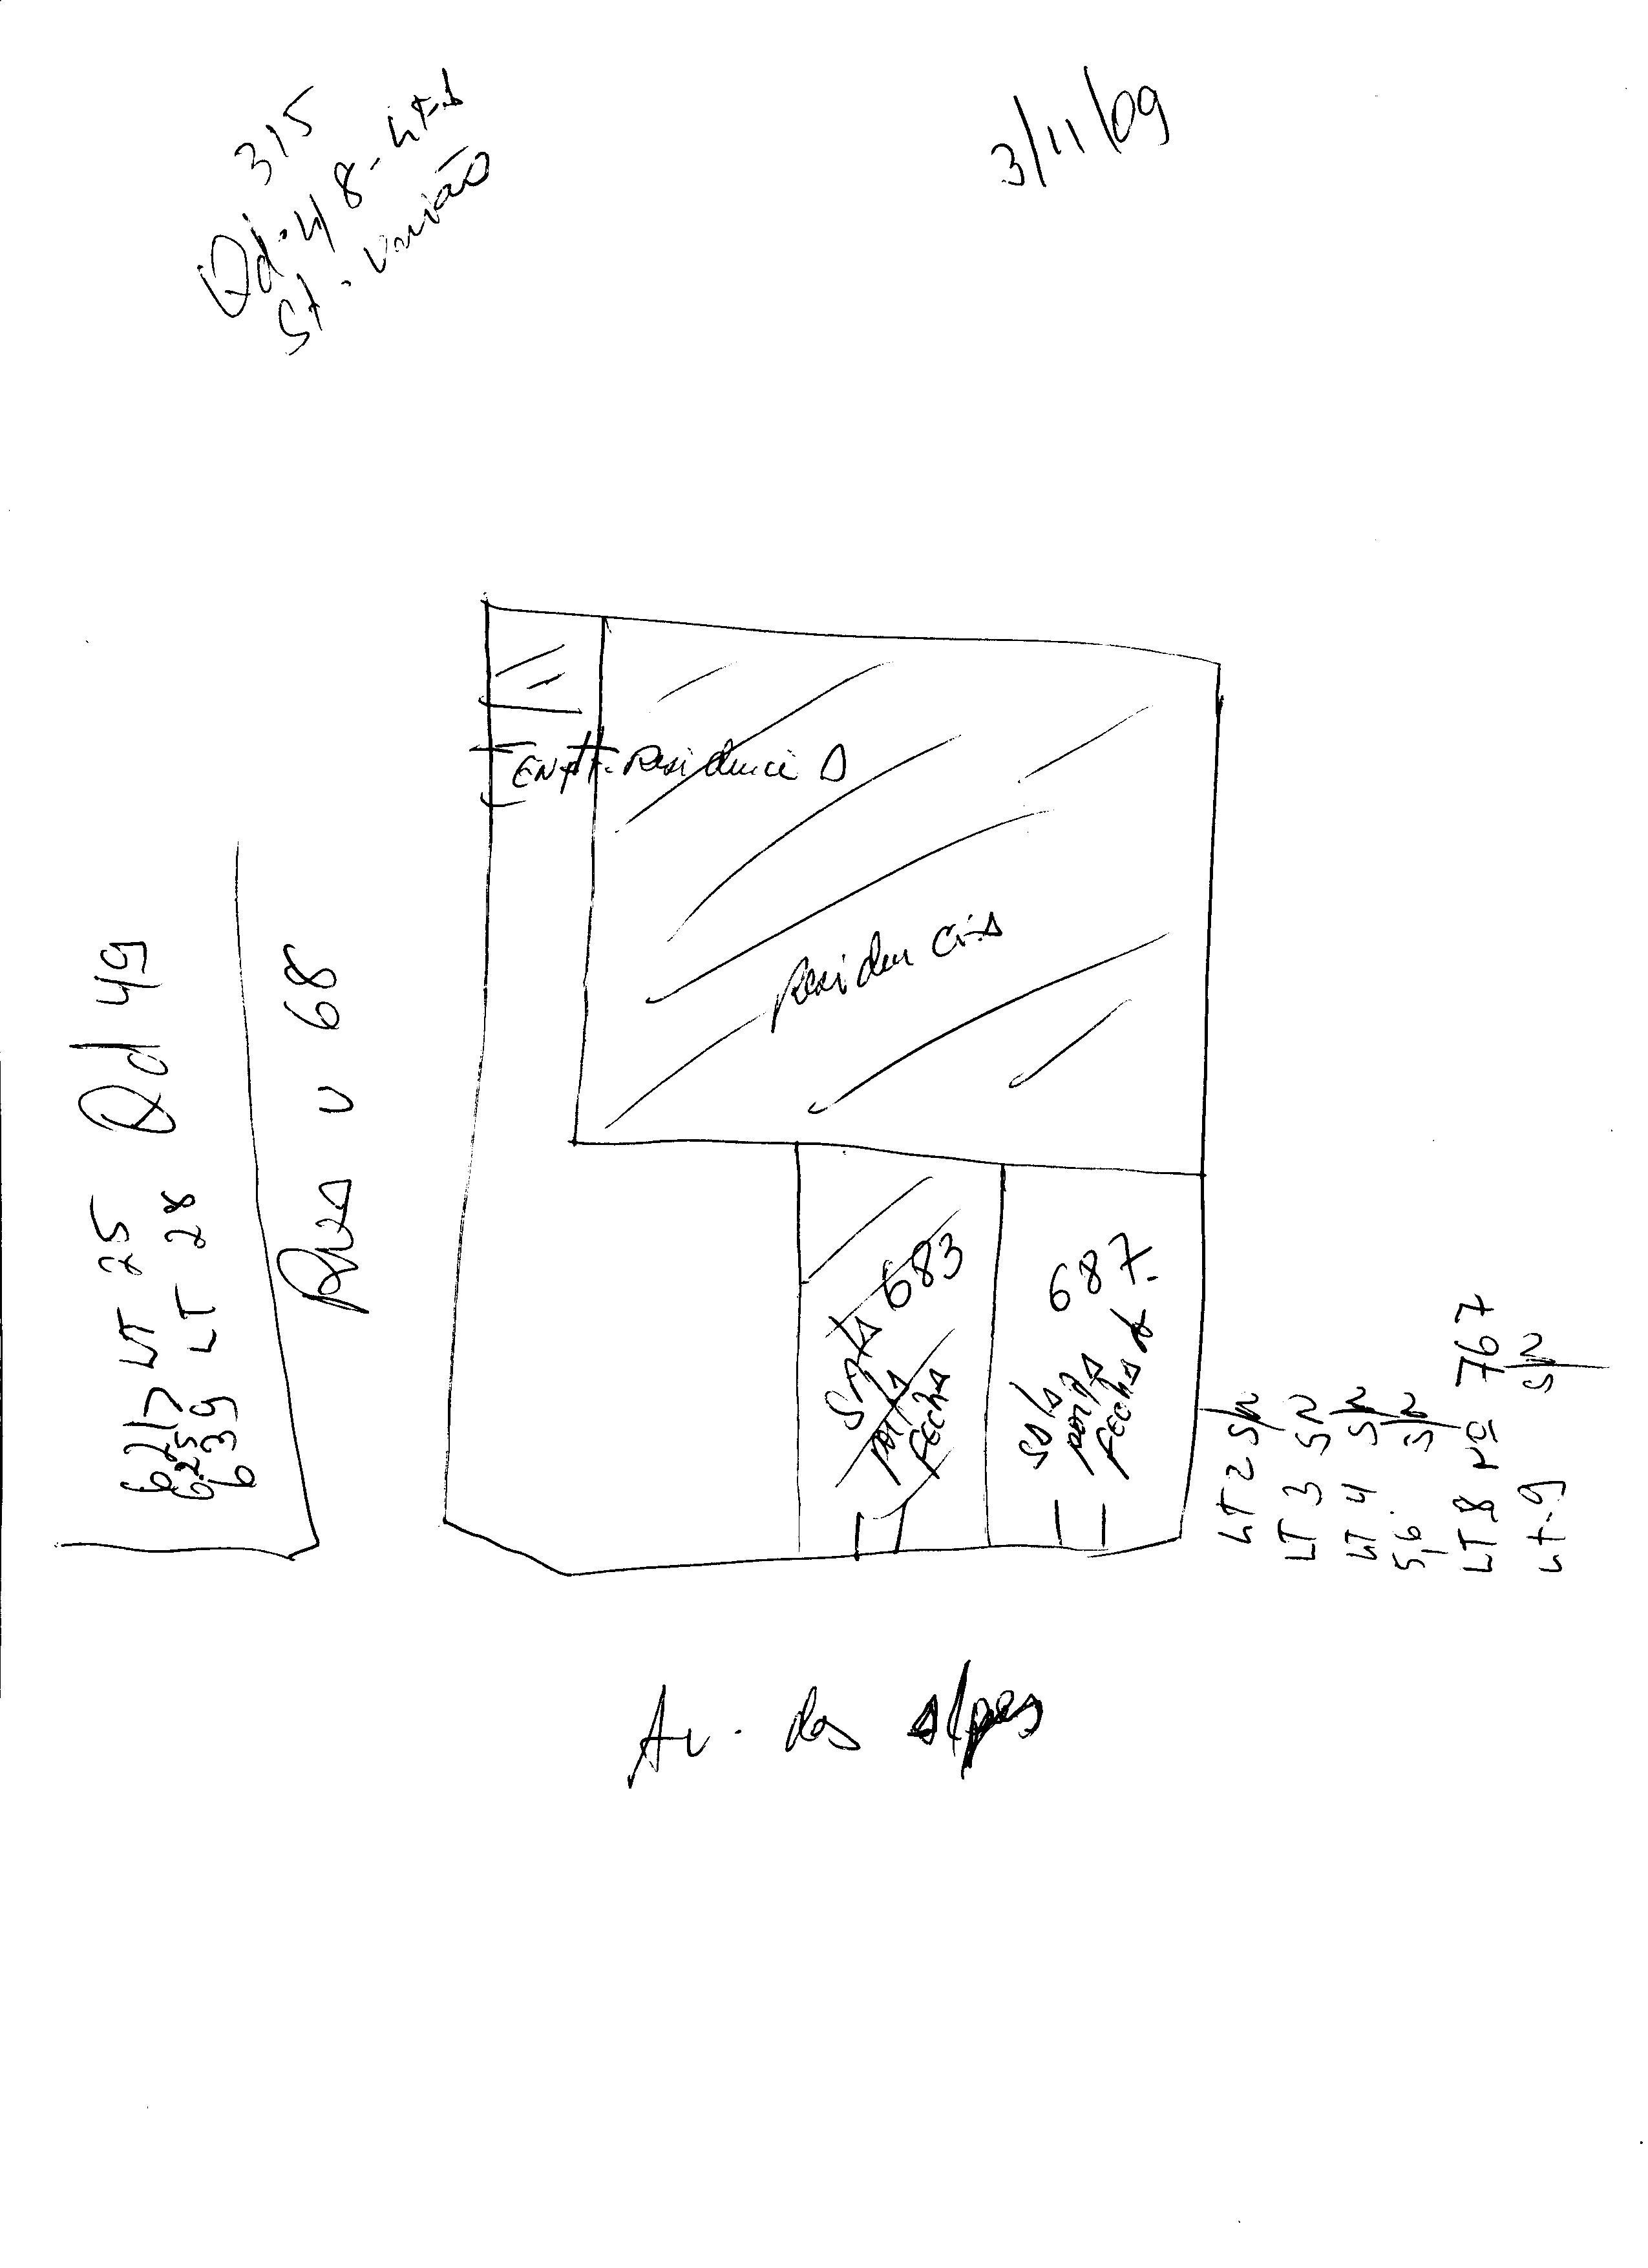 315
Qd. 48 - Lt-1
St. União
3/11/09
Entr. Residencia
Residencia
Qd 49
LT 25
LT 28
6217
625
639
Rua U 68
683
Sala
porta
fecha
687
Sala
porta
fecha
LT 2 S/N
LT 3 SN
LT 4 S/N
5,6 S/N
LT 8 Nº 767
Lt-9 S/N
Av. dos Alpes